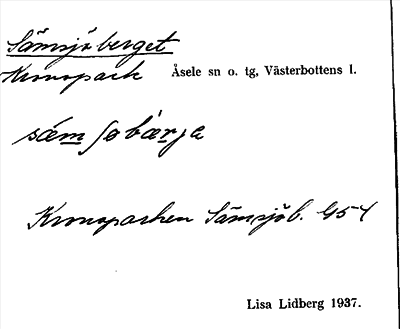 Sämsjöberget
Kronopark Åsele sn o. tg, Västerbottens l.
sæ̀m ʃøbæ̀rjɐ
Kronoparken Sämsjöb. G54
Lisa Lidberg 1937.